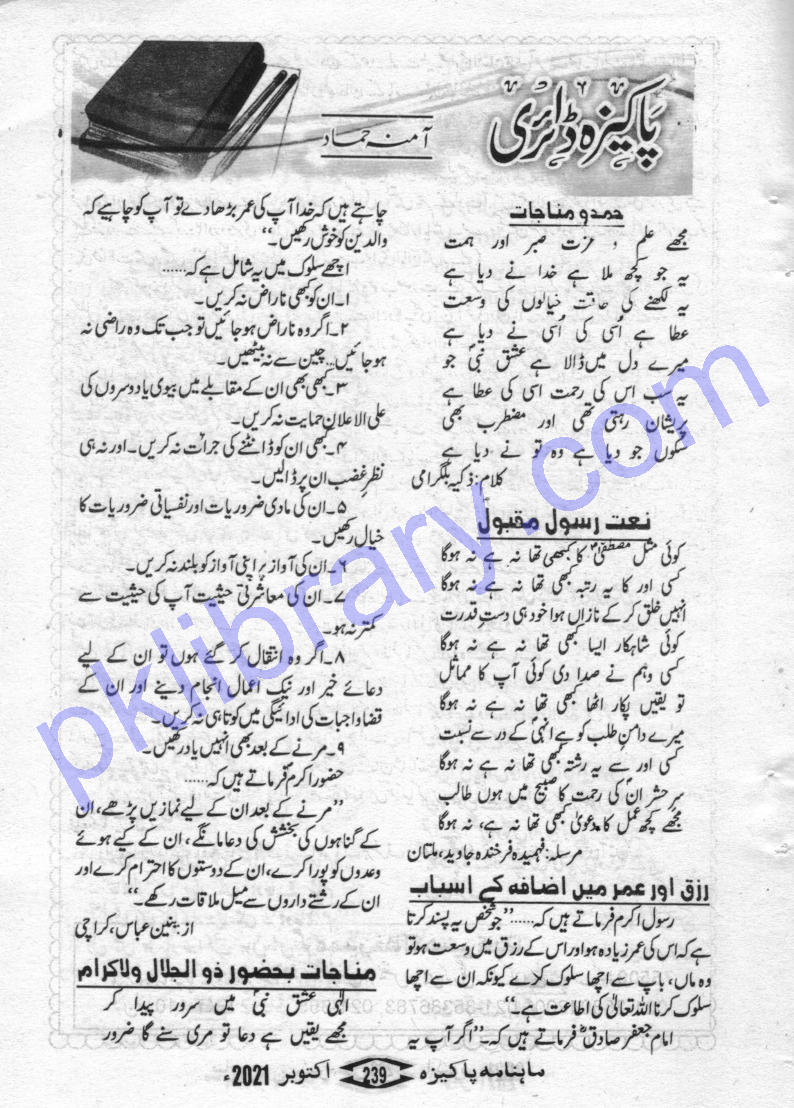 پاکیزہ ڈائری
آمنہ حماد
حمد و مناجات
مجھے علم و عزت صبر اور ہمت
یہ جو کچھ ملا ہے خدا نے دیا ہے
یہ لکھنے کی طاقت خیالوں کی وسعت
عطا ہے اُسی کی اُسی نے دیا ہے
میرے دل میں ڈالا ہے عشق نبیؐ جو
یہ سب اس کی رحمت اسی کی عطا ہے
پریشان رہتی تھی اور مضطرب بھی
سکوں جو دیا ہے وہ تو نے دیا ہے
کلام: ذکیہ بلگرامی
نعت رسول مقبولؐ
کوئی مثل مصطفیٰؐ کا کبھی تھا نہ ہے نہ ہوگا
کسی اور کا یہ رتبہ کبھی تھا نہ ہے نہ ہوگا
انہیں خلق کر کے نازاں ہوا خود ہی دستِ قدرت
کوئی شاہکار ایسا کبھی تھا نہ ہے نہ ہوگا
کسی وہم نے صدا دی کوئی آپ کا مماثل
تو یقیں پکار اٹھا کبھی تھا نہ ہے نہ ہوگا
میرے دامنِ طلب کو ہے انہیؐ کے در سے نسبت
کسی اور سے یہ رشتہ کبھی تھا نہ ہے نہ ہوگا
سرِ حشر انؐ کی رحمت کا صبیح میں ہوں طالب
مجھے کچھ عمل کا دعویٰ کبھی تھا نہ ہے، نہ ہوگا
مرسلہ: فہمیدہ فرخندہ جاوید، ملتان
رزق اور عمر میں اضافہ کے اسباب
رسول اکرم فرماتے ہیں کہ...... ”جو شخص یہ پسند کرتا
ہے کہ اس کی عمر زیادہ ہو اور اس کے رزق میں وسعت ہو تو
وہ ماں، باپ سے اچھا سلوک کرے کیونکہ ان سے اچھا
سلوک کرنا اللہ تعالیٰ کی اطاعت ہے“
امام جعفر صادقؑ فرماتے ہیں کہ۔ ”اگر آپ یہ
چاہتے ہیں کہ خدا آپ کی عمر بڑھا دے تو آپ کو چاہیے کہ
والدین کو خوش رکھیں۔“
اچھے سلوک میں یہ شامل ہے کہ......
۱۔ ان کو کبھی ناراض نہ کریں۔
۲۔ اگر وہ ناراض ہو جائیں تو جب تک وہ راضی نہ
ہو جائیں... چین سے نہ بیٹھیں۔
۳۔ کبھی بھی ان کے مقابلے میں بیوی یا دوسروں کی
علی الاعلان حمایت نہ کریں۔
۴۔ کبھی ان کو ڈانٹنے کی جرأت نہ کریں۔ اور نہ ہی
نظرِ غضب ان پر ڈالیں۔
۵۔ ان کی مادی ضروریات اور نفسیاتی ضروریات کا
خیال رکھیں۔
۶۔ ان کی آواز پر اپنی آواز کو بلند نہ کریں۔
۷۔ ان کی معاشرتی حیثیت آپ کی حیثیت سے
کمتر نہ ہو۔
۸۔ اگر وہ انتقال کر گئے ہوں تو ان کے لیے
دعائے خیر اور نیک اعمال انجام دینے اور ان کے
قضا واجبات کی ادائیگی میں کوتاہی نہ کریں۔
۹۔ مرنے کے بعد بھی انہیں یاد رکھیں۔
حضور اکرمؐ فرماتے ہیں کہ......
”مرنے کے بعد ان کے لیے نمازیں پڑھے، ان
کے گناہوں کی بخشش کی دعا مانگے، ان کے کیے ہوئے
وعدوں کو پورا کرے، ان کے دوستوں کا احترام کرے اور
ان کے رشتے داروں سے میل ملاقات رکھے۔“
از بنین عباس، کراچی
مناجات بحضور ذو الجلال ولاکرام
الٰہی عشق نبیؐ میں سرور پیدا کر
مجھے یقیں ہے دعا تو مری سنے گا ضرور
ماہنامہ پاکیزہ 239 اکتوبر 2021ء
pklibrary.com